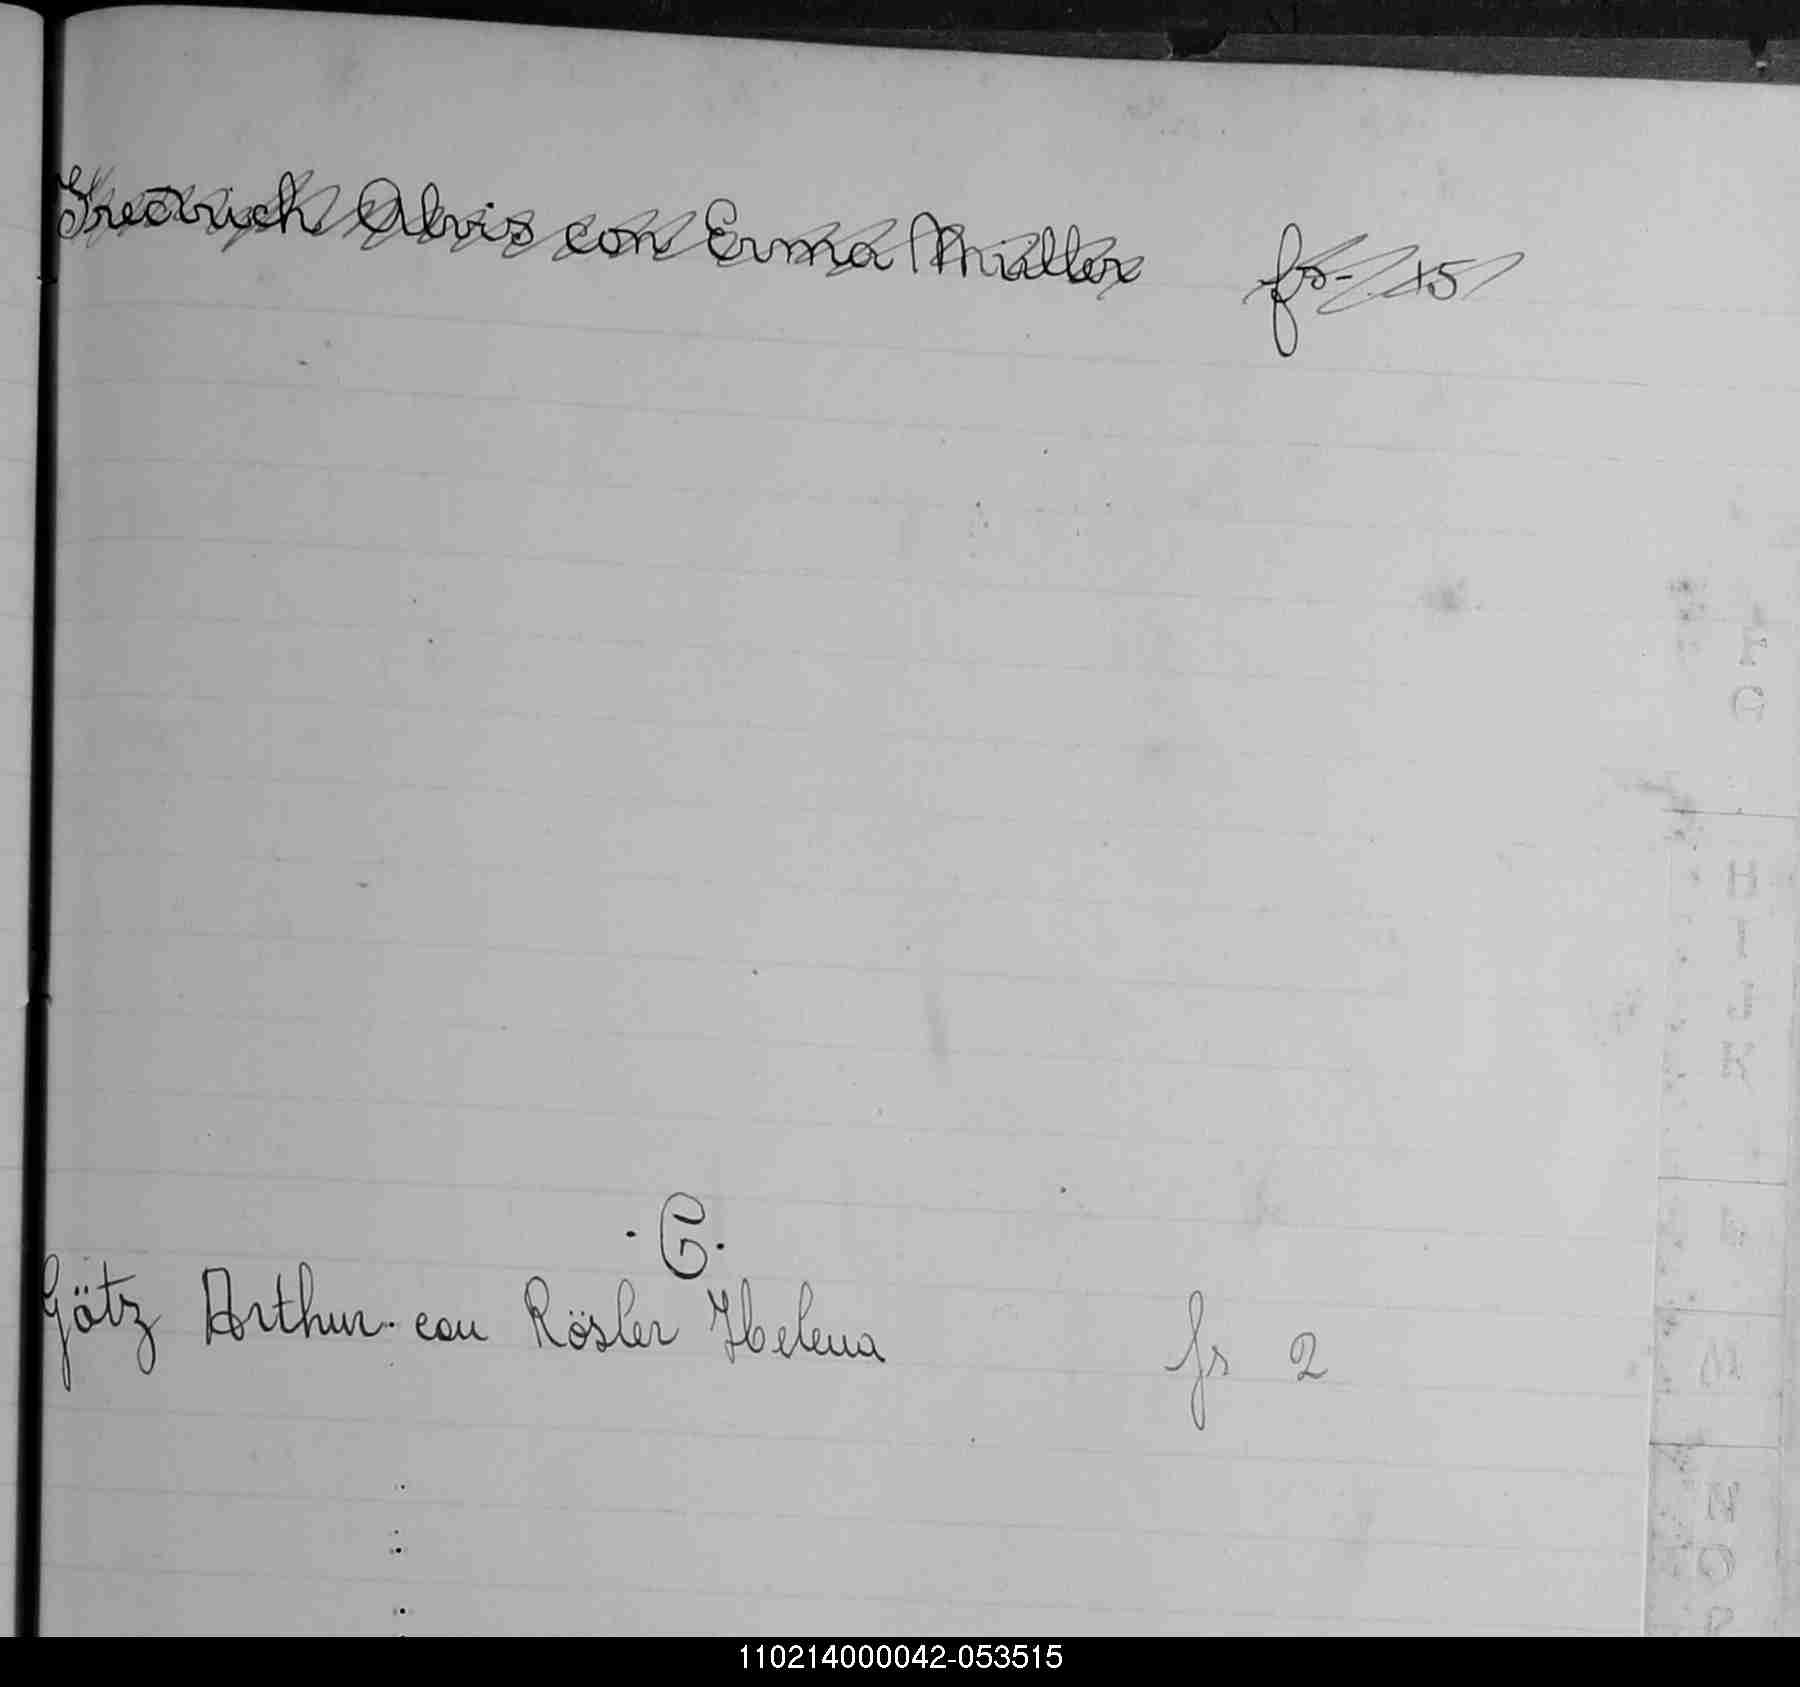 Fredrich Alvis con Erma Müller fs- 15
. G .
Götz Arthur. con Rösler Helena fs 2
110214000042-053515